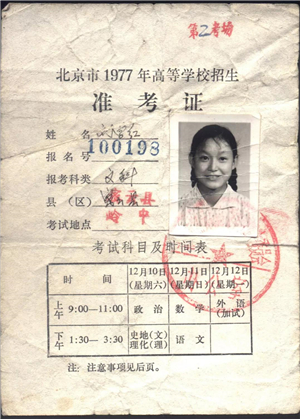 第2考场
北京市1977年高等学校招生
准考证
姓名
报名号 100198
报考科类 文科
县(区)
考试地点 岭中
考试科目及时间表
时间 12月10日(星期六) 12月11日(星期日) 12月12日(星期一)
上午 9:00—11:00 政治 数学 外语(加试)
下午 1:30—3:30 史地(文)理化(理) 语文
注:注意事项见后页。